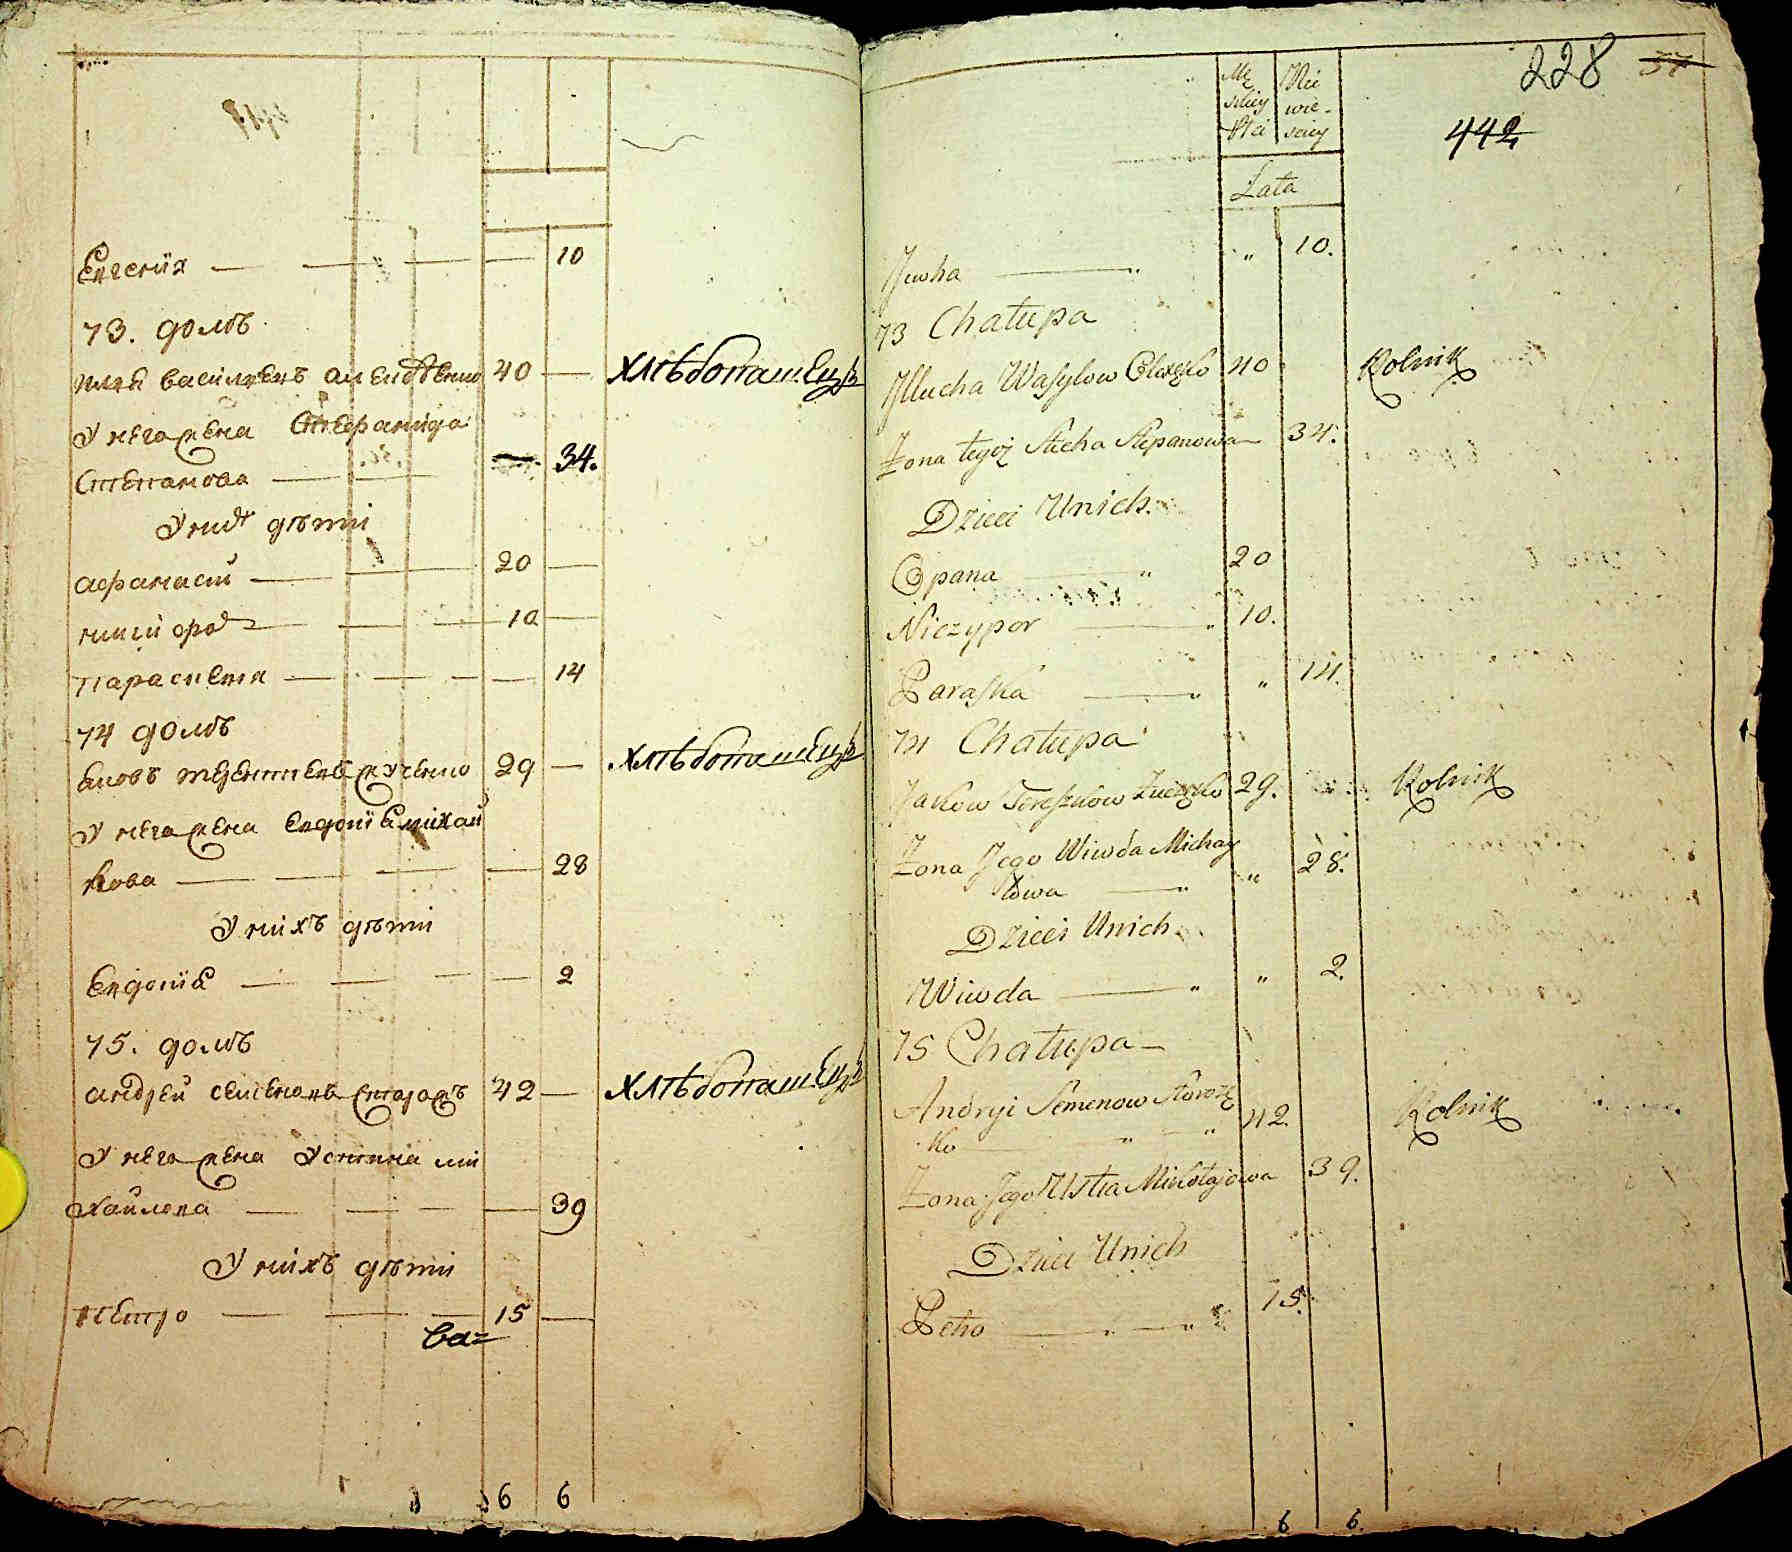 Евгения 10
73. домъ
Василевъ 40 — хлѣбопашецъ
У него жена Стефанида
Степанова — 34.
У них дѣти
Афанаси — 20 —
Никифор — 10 —
Параскевия — 14
74 домъ
Яковъ 29 — хлѣбопашецъ
У него жена Евдокия Михай
лова — 28
У нихъ дѣти
Евдокия — 2
75. домъ
Андрей Семеновъ 42 — хлѣбопашецъ
У него жена Устина Ми
хайлова — 39
У нихъ дѣти
Петро — 15 —
ва=
6 6
228 57
442
Mę Nie
skiey wie-
Płci sciey
Lata
Jewha — „ 10.
73 Chałupa
Illucha Wasylow 40 Rolnik
Żona tegoż Stecha Stepanowa 34.
Dzieci Unich.
Opana „ 20
Niczypor „ 10.
Paraska „ 14.
74 Chałupa
Jakow Tereszkow 29. Rolnik
Żona Jego Wiwda Michay
łowa „ 28.
Dzieci Unich
Wiwda „ 2.
75 Chałupa
Andryi Semenow Storoże
ko „ 42. Rolnik
Żona Jego Ustia Mikołajowa 39.
Dzieci Unich
Petro „ 15.
6 6.